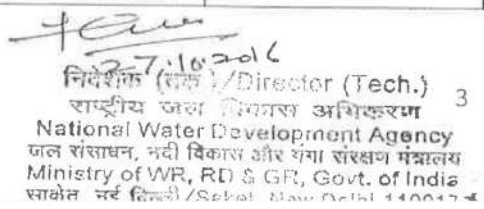 27.10.2016
निदेशक (तक.)/Director (Tech.)
3
राष्ट्रीय जल विकास अभिकरण
National Water Development Agency
जल संसाधन, नदी विकास और गंगा संरक्षण मंत्रालय
Ministry of WR, RD & GR, Govt. of India
साकेत, नई दिल्ली/Saket, New Delhi 110017